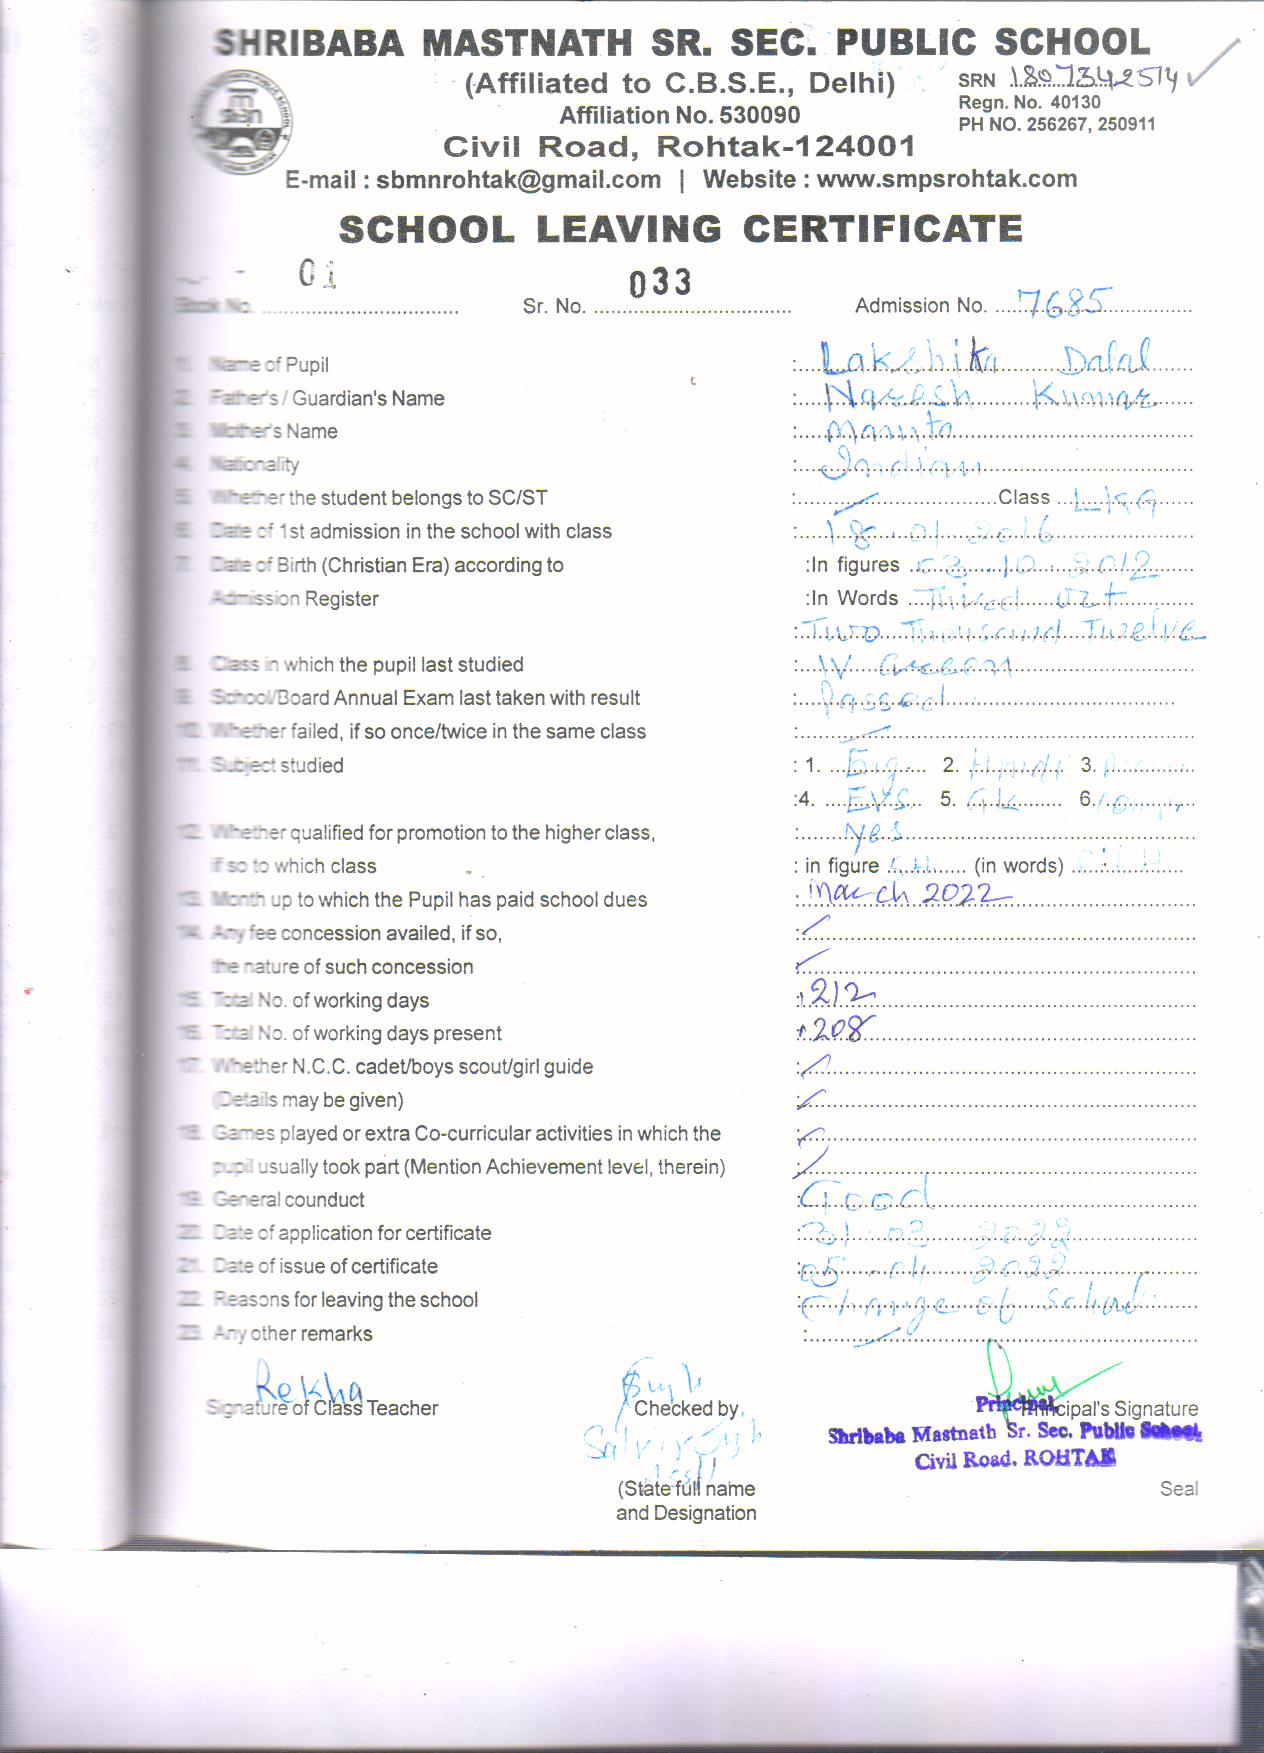 SHRIBABA MASTNATH SR. SEC. PUBLIC SCHOOL
(Affiliated to C.B.S.E., Delhi)
SRN 1807342514
Affiliation No. 530090
Regn. No. 40130
PH NO. 256267, 250911
Civil Road, Rohtak-124001
E-mail : sbmnrohtak@gmail.com | Website : www.smpsrohtak.com
SCHOOL LEAVING CERTIFICATE
Book No. 01 Sr. No. 033 Admission No. 7685
1. Name of Pupil : Lakshika Dalal
2. Father's / Guardian's Name : Naresh Kumar
3. Mother's Name : Mamta
4. Nationality : Indian
5. Whether the student belongs to SC/ST : Class LKG
6. Date of 1st admission in the school with class : 18.01.2016
7. Date of Birth (Christian Era) according to :In figures 03.10.2012
Admission Register :In Words Third Oct
: Two Thousand Twelve
8. Class in which the pupil last studied : IV Green
9. School/Board Annual Exam last taken with result : Passed
10. Whether failed, if so once/twice in the same class :
11. Subject studied : 1. Eng 2. Hindi 3.
:4. EVS 5. GK 6.
12. Whether qualified for promotion to the higher class, : Yes
if so to which class : in figure (in words)
13. Month up to which the Pupil has paid school dues : March 2022
14. Any fee concession availed, if so, :
the nature of such concession :
15. Total No. of working days : 212
16. Total No. of working days present : 208
17. Whether N.C.C. cadet/boys scout/girl guide :
(Details may be given) :
18. Games played or extra Co-curricular activities in which the :
pupil usually took part (Mention Achievement level, therein) :
19. General counduct : Good
20. Date of application for certificate : 31.03.2022
21. Date of issue of certificate : 05-04-2022
22. Reasons for leaving the school : Change of School
23. Any other remarks :
Rekha
Signature of Class Teacher Checked by, Principal's Signature
Principal
Shribaba Mastnath Sr. Sec. Public School
Civil Road. ROHTAK
(State full name Seal
and Designation